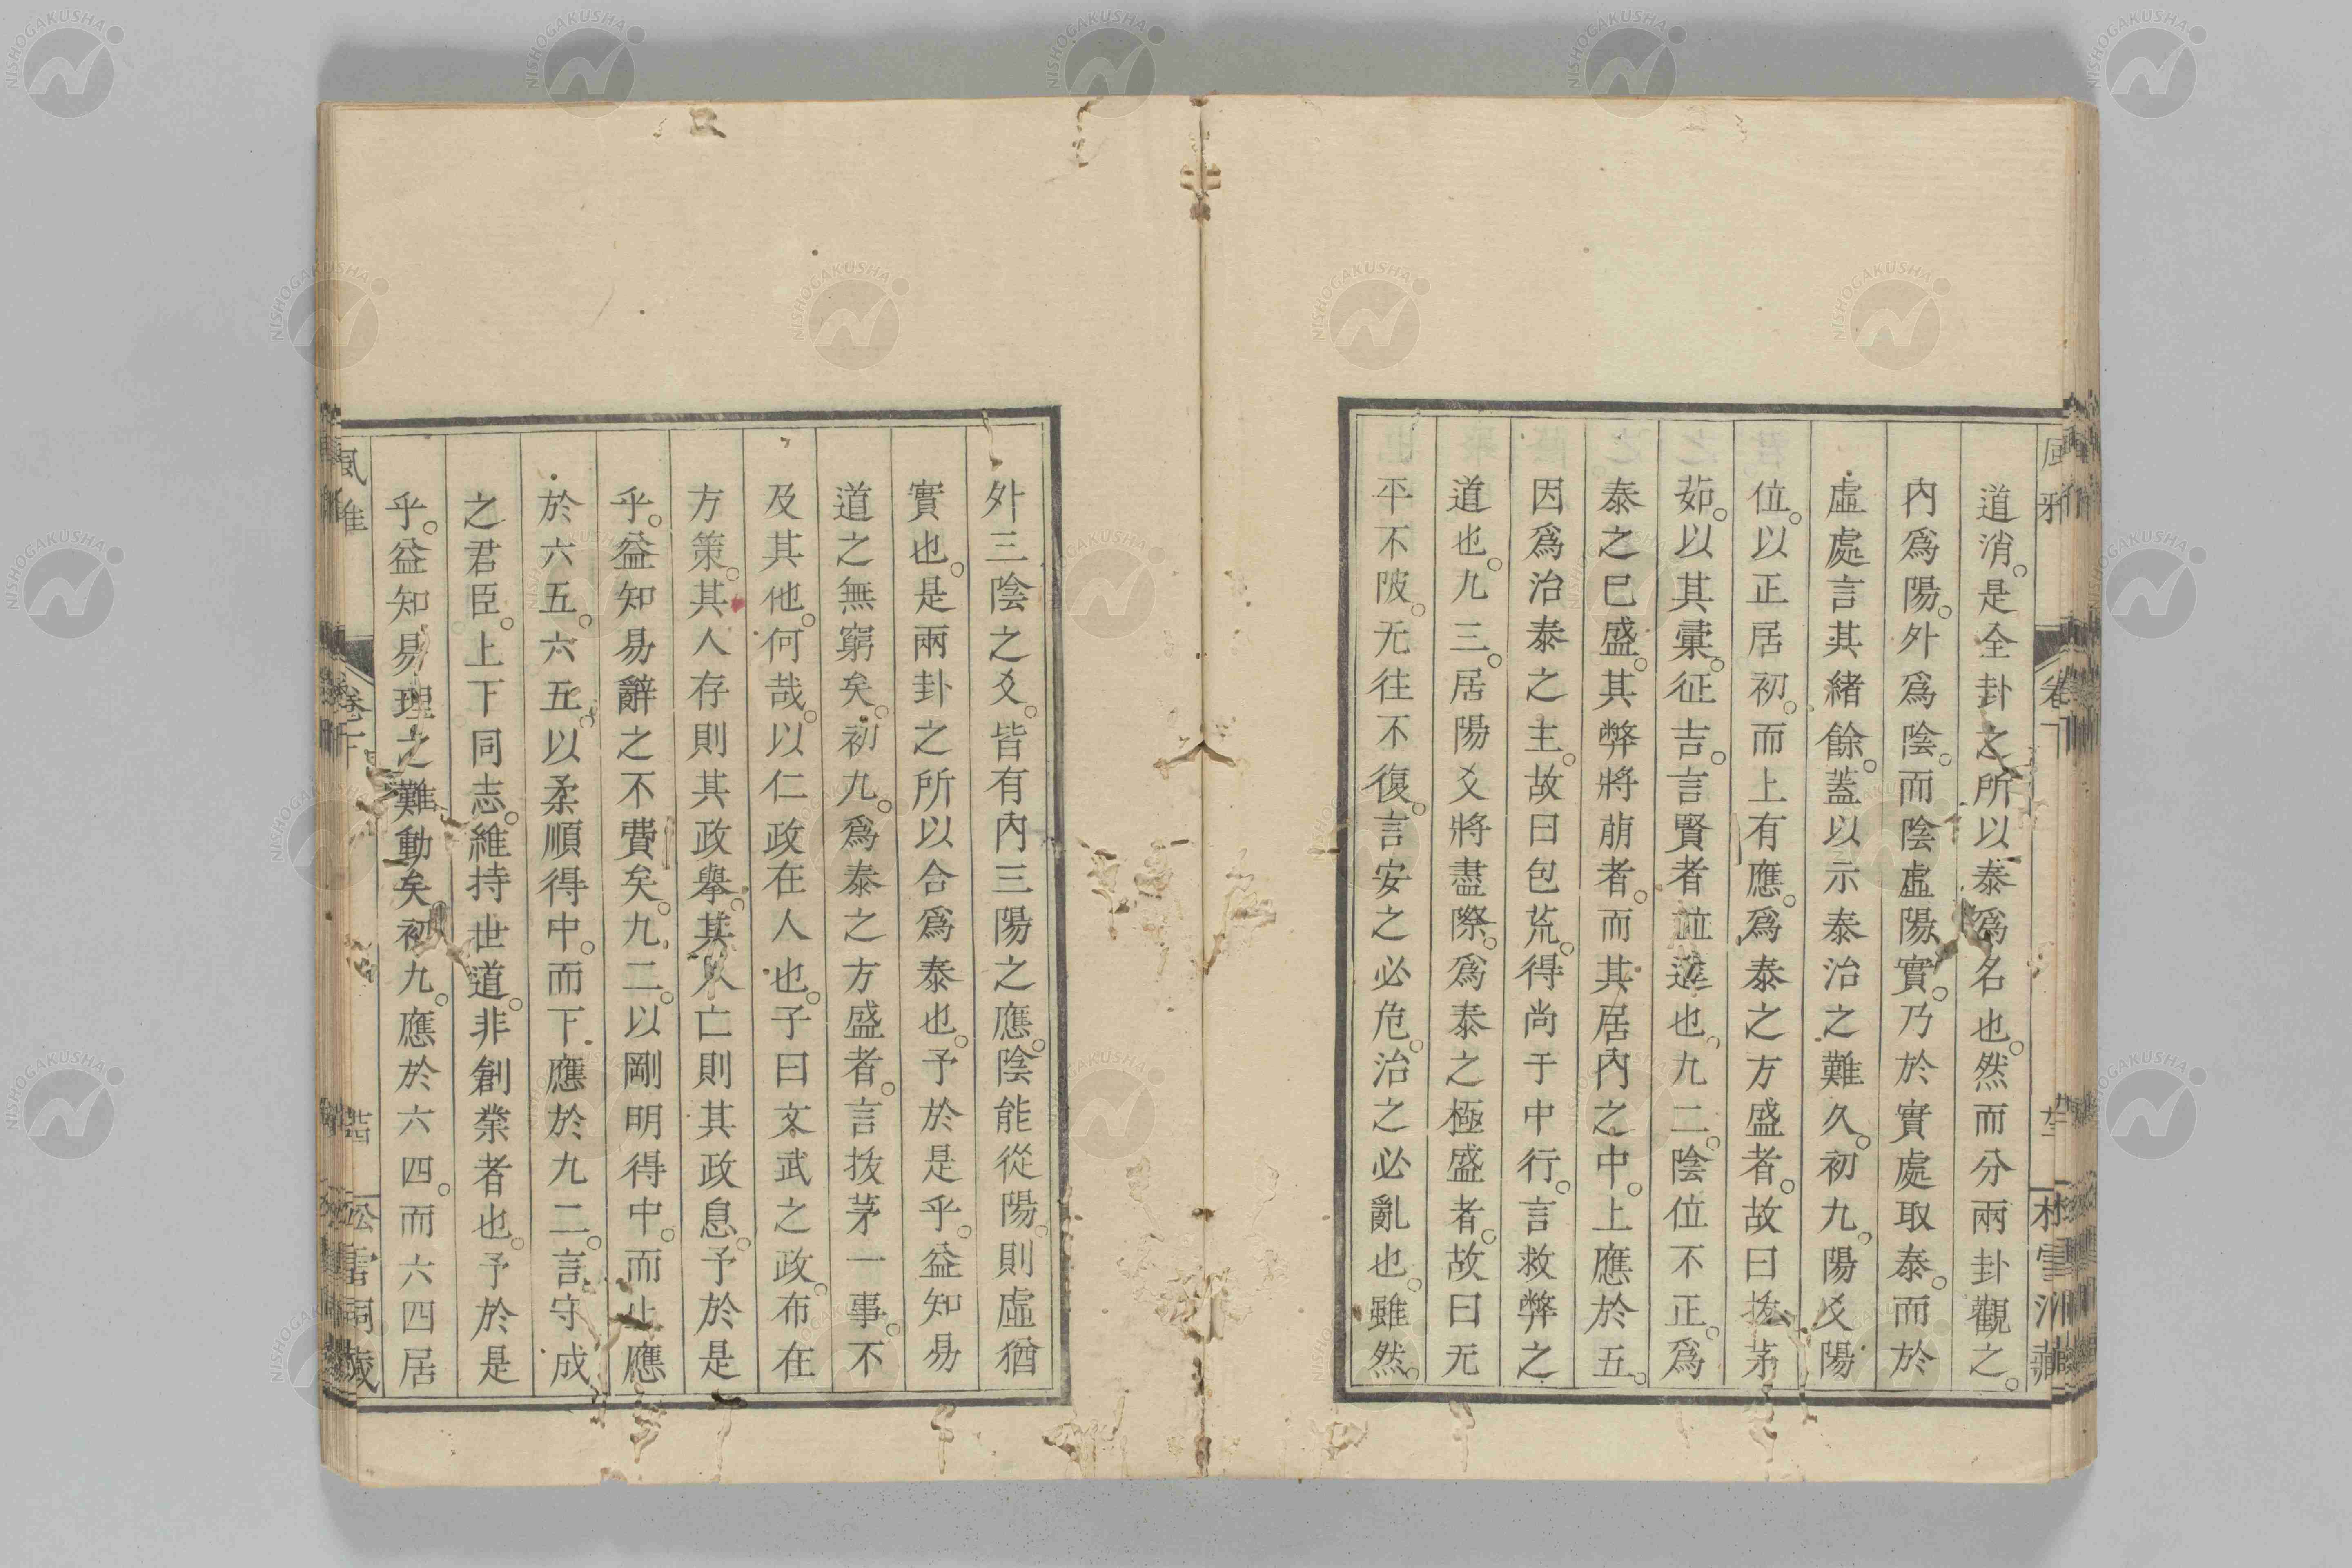 道消。是全卦之所以泰爲名也。然而分兩卦觀之。
內爲陽。外爲陰。而陰虛陽實。乃於實處取泰。而於
虛處言其緒餘。蓋以示泰治之難久。初九。陽爻陽
位。以正居初。而上有應。爲泰之方盛者。故曰拔茅
茹。以其彙。征吉。言賢者竝進也。九二。陰位不正。爲
泰之已盛。其弊將萠者。而其居內之中。上應於五。
因爲治泰之主。故曰包荒。得尚于中行。言救弊之
道也。九三。居陽爻將盡際。爲泰之極盛者。故曰无
平不陂。无往不復。言安之必危。治之必亂也。雖然。
外三陰之爻。皆有內三陽之應。陰能從陽。則虛猶
實也。是兩卦之所以合爲泰也。予於是乎。益知易
道之無窮矣。初九。爲泰之方盛者。言拔茅一事。不
及其他。何哉。以仁政在人也。子曰文武之政。布在
方策。其人存則其政擧。其人亡則其政息。予於是
乎。益知易辭之不費矣。九二。以剛明得中。而上應
於六五。六五。以柔順得中。而下應於九二。言守成
之君臣。上下同志。維持世道。非創業者也。予於是
乎。益知易理之難動矣。初九。應於六四。而六四居
卷下
NISHOGAKUSHA